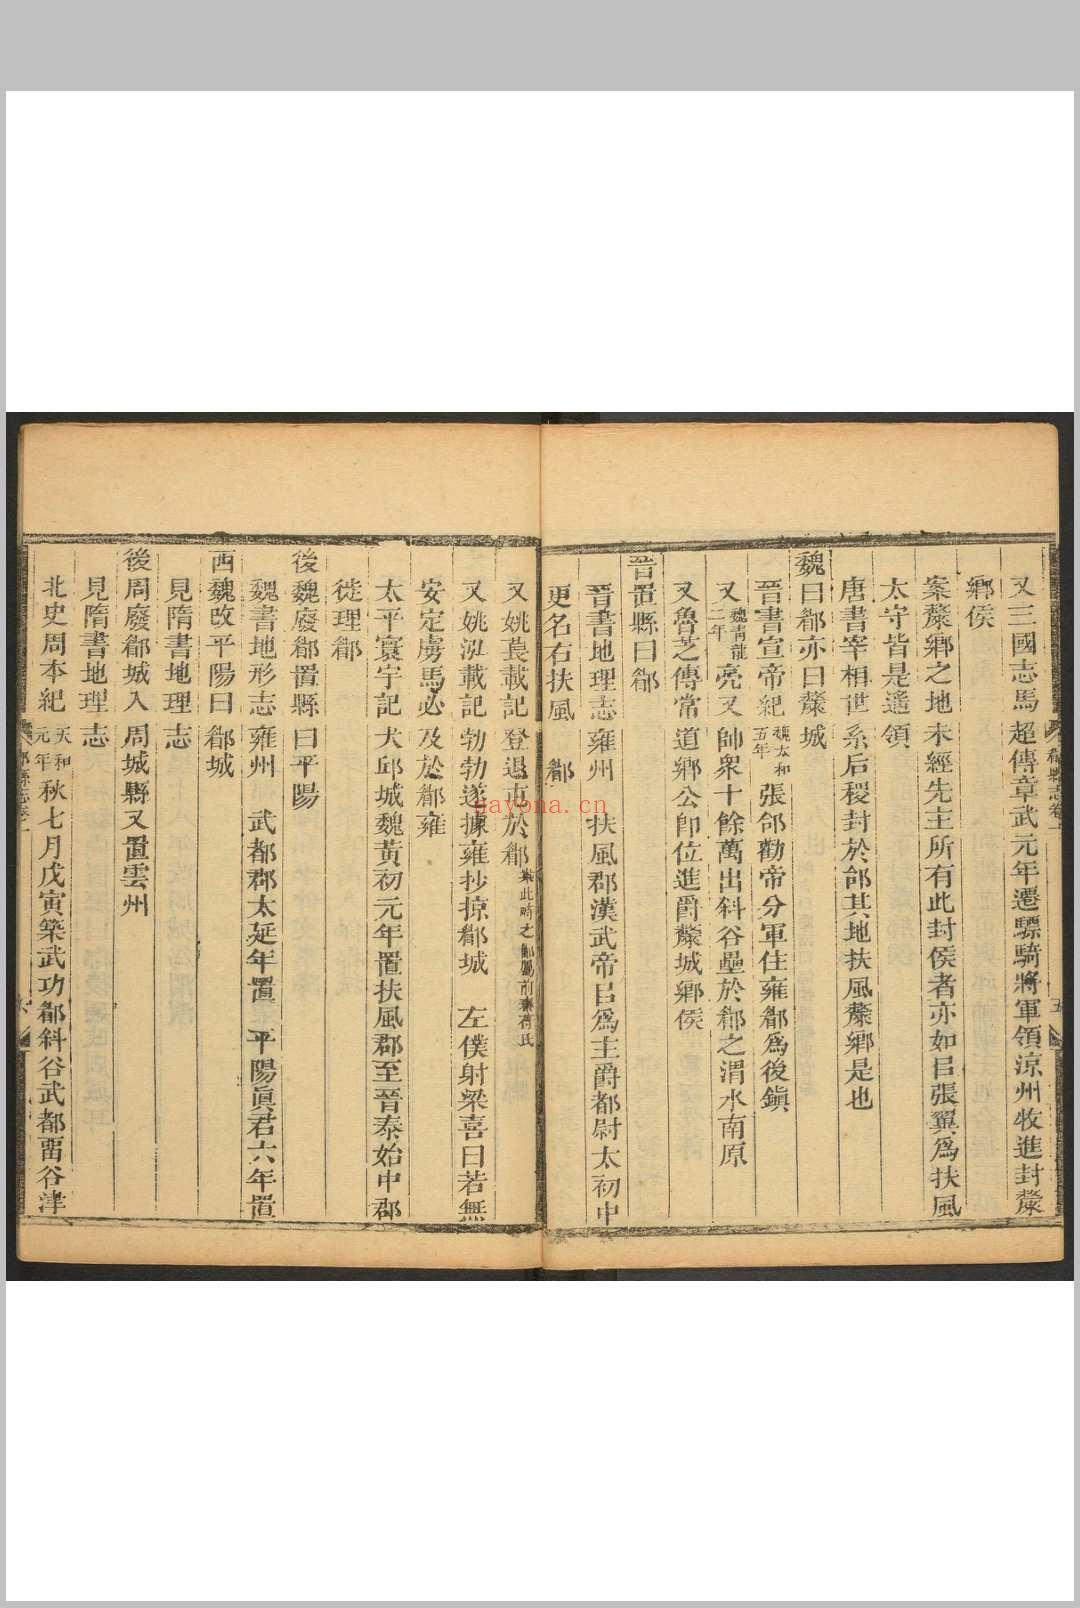 又三國志馬超傳章武元年遷驃騎將軍領涼州牧進封斄
鄉侯
案斄鄉之地未經先主所有此封侯者亦如㠯張翼爲扶風
太守皆是遙領
唐書宰相世系后稷封於邰其地扶風斄鄉是也
魏曰郿亦曰斄城
晉書宣帝紀魏太和五年張郃勸帝分軍住雍郿爲後鎭
又魏靑龍二年亮又帥衆十餘萬出斜谷壘於郿之渭水南原
又魯芝傳常道鄉公卽位進爵斄城鄉侯
晉置縣曰郿
晉書地理志雍州 扶風郡漢武帝㠯爲主爵都尉太初中
更名右扶風 郿
又姚萇載記登退屯於郿 此時之郿屬前秦苻氏
又姚泓載記勃勃遂據雍抄掠郿城 左僕射梁喜曰若無
安定虜馬必及於郿雍
太平寰宇記犬邱城魏黃初元年置扶風郡至晉泰始中郡
徙理郿
後魏廢郿置縣曰平陽
魏書地形志雍州 武都郡太延年置 平陽眞君六年置
西魏改平陽曰郿城
見隋書地理志
後周廢郿城入周城縣又置雲州
見隋書地理志
北史周本紀天和元年秋七月戊寅築武功郿斜谷武都畱谷津
郿縣志卷一
五
gayona.cn